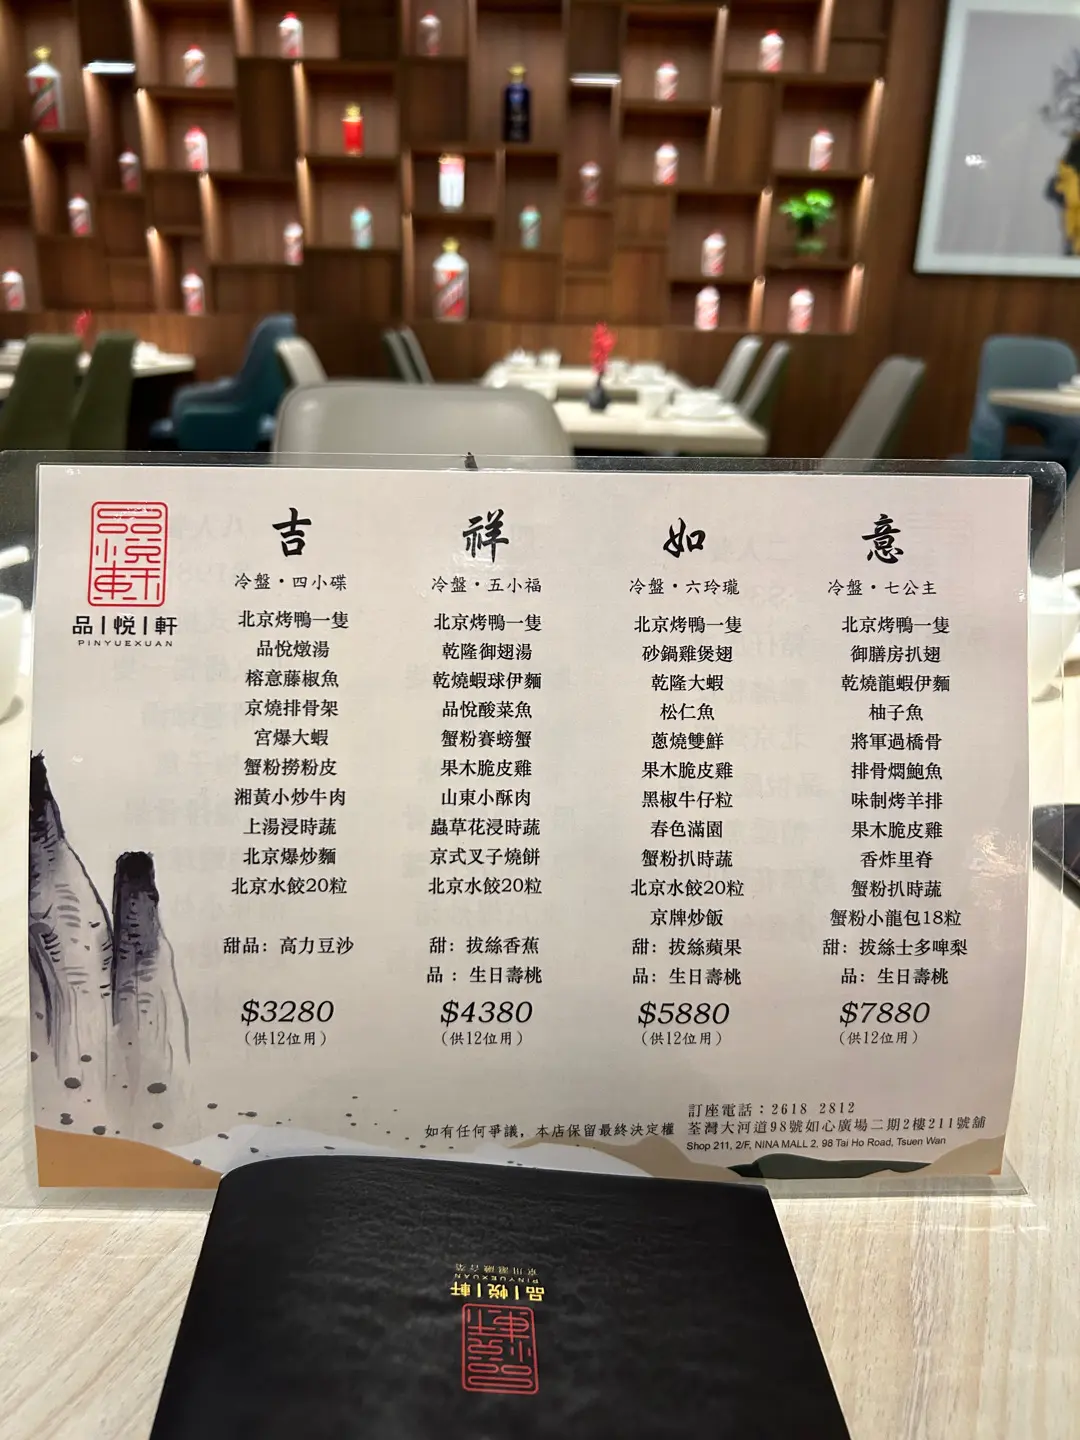 品悅軒
品|悅|軒
PINYUEXUAN
吉
冷盤·四小碟
北京烤鴨一隻
品悅燉湯
榕意藤椒魚
京燒排骨架
宮爆大蝦
蟹粉撈粉皮
湘黃小炒牛肉
上湯浸時蔬
北京爆炒麵
北京水餃20粒
甜品：高力豆沙
$3280
(供12位用)
祥
冷盤·五小福
北京烤鴨一隻
乾隆御翅湯
乾燒蝦球伊麵
品悅酸菜魚
蟹粉賽螃蟹
果木脆皮雞
山東小酥肉
蟲草花浸時蔬
京式叉子燒餅
北京水餃20粒
甜：拔絲香蕉
品：生日壽桃
$4380
(供12位用)
如
冷盤·六玲瓏
北京烤鴨一隻
砂鍋雞煲翅
乾隆大蝦
松仁魚
蔥燒雙鮮
果木脆皮雞
黑椒牛仔粒
春色滿園
蟹粉扒時蔬
北京水餃20粒
京牌炒飯
甜：拔絲蘋果
品：生日壽桃
$5880
(供12位用)
意
冷盤·七公主
北京烤鴨一隻
御膳房扒翅
乾燒龍蝦伊麵
柚子魚
將軍過橋骨
排骨燜鮑魚
味制烤羊排
果木脆皮雞
香炸里脊
蟹粉扒時蔬
蟹粉小龍包18粒
甜：拔絲士多啤梨
品：生日壽桃
$7880
(供12位用)
如有任何爭議，本店保留最終決定權
訂座電話：2618 2812
荃灣大河道98號如心廣場二期2樓211號舖
Shop 211, 2/F, NINA MALL 2, 98 Tai Ho Road, Tsuen Wan
品|悅|軒
PINYUEXUAN
品悅軒